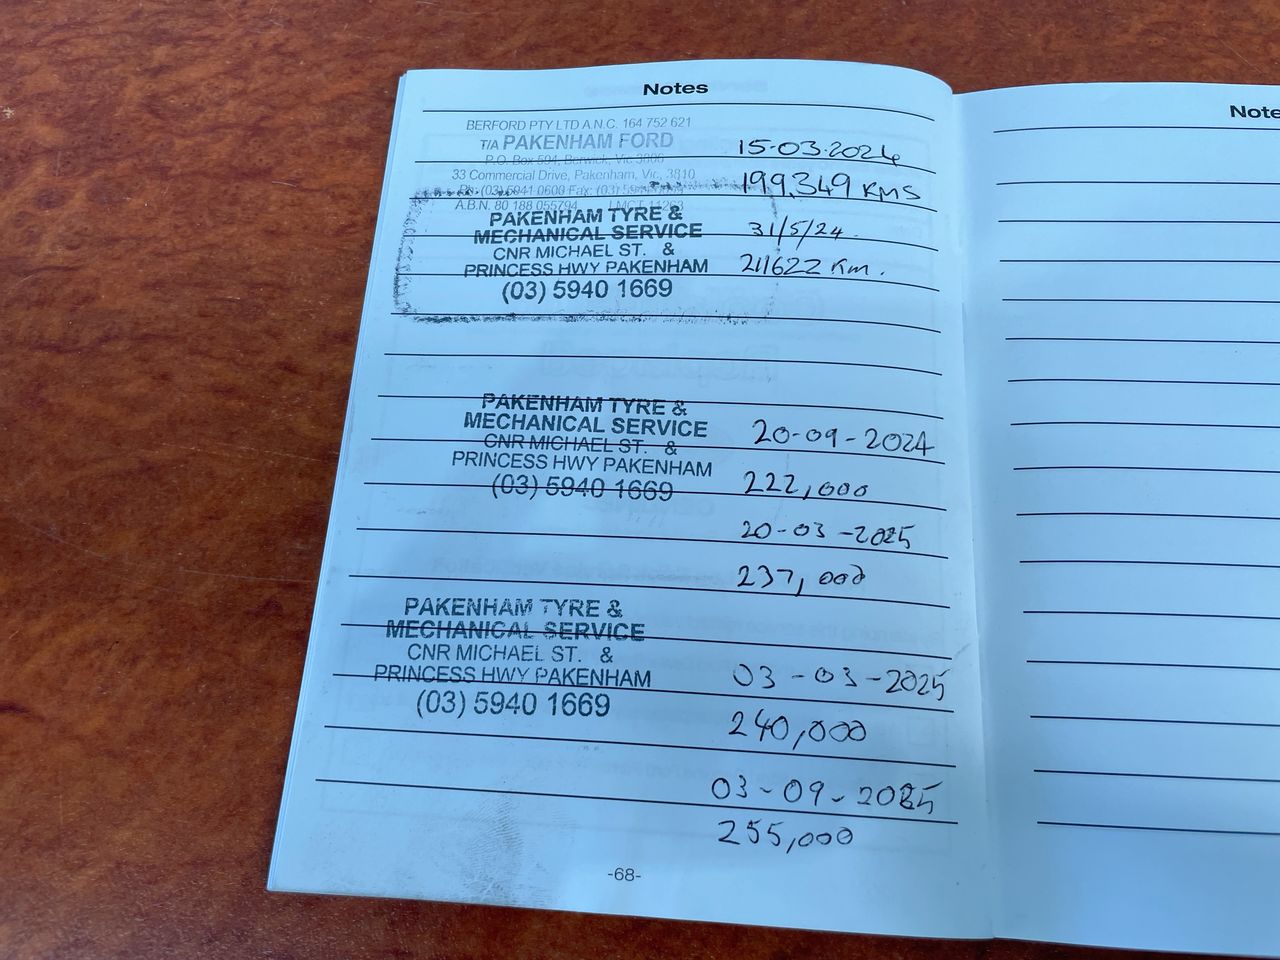 Notes
BERFORD PTY LTD A.N.C. 164 752 621
T/A PAKENHAM FORD
P.O. Box 594, Berwick, Vic 3806
33 Commercial Drive, Pakenham, Vic, 3810
Ph: (03) 5941 0600 Fax: (03)
A.B.N. 80 188 055794 LMCT 11263
15-03-2024
199,349 KMS
PAKENHAM TYRE &
MECHANICAL SERVICE
CNR MICHAEL ST. &
PRINCESS HWY PAKENHAM
(03) 5940 1669
31/5/24.
211622 Km.
PAKENHAM TYRE &
MECHANICAL SERVICE
CNR MICHAEL ST. &
PRINCESS HWY PAKENHAM
(03) 5940 1669
20-09-2024
222,000
20-03-2025
237,000
PAKENHAM TYRE &
MECHANICAL SERVICE
CNR MICHAEL ST. &
PRINCESS HWY PAKENHAM
(03) 5940 1669
03-03-2025
240,000
03-09-2025
255,000
-68-
Note